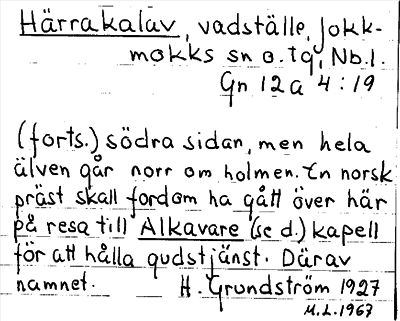 Härrakalav, vadställe, Jokk-
mokks sn o. tg, Nb.l.
Gn 12a 4:19
(forts.) södra sidan, men hela
älven går norr om holmen. En norsk
präst skall fordom ha gått över här
på resa till Alkavare (se d.) kapell
för att hålla gudstjänst. Därav
namnet. H. Grundström 1927
M.L. 1967